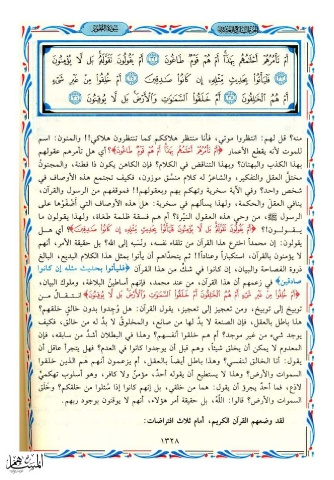 أَمْ تَأْمُرُهُمْ أَحْلَامُهُمْ بِهَذَا أَمْ هُمْ قَوْمٌ طَاغُونَ ﴿٣٢﴾ أَمْ يَقُولُونَ تَقَوَّلَهُ بَل لَّا يُؤْمِنُونَ
﴿٣٣﴾ فَلْيَأْتُوا بِحَدِيثٍ مِّثْلِهِ إِن كَانُوا صَادِقِينَ ﴿٣٤﴾ أَمْ خُلِقُوا مِنْ غَيْرِ شَيْءٍ
أَمْ هُمُ الْخَالِقُونَ ﴿٣٥﴾ أَمْ خَلَقُوا السَّمَوَاتِ وَالْأَرْضَ بَل لَّا يُوقِنُونَ ﴿٣٦﴾
منه؟ قل لهم: انتظروا موتي، فأنا منتظر هلاككم كما تنتظرون هلاكي!! والمنون: اسم
للموت لأنه يقطع الأعمار ﴿أَمْ تَأْمُرُهُمْ أَحْلَامُهُمْ بِهَذَا أَمْ هُمْ قَوْمٌ طَاغُونَ﴾؟ أي هل تأمرهم عقولهم
بهذا الكذب والبهتان؟ وبهذا التناقض في الكلام؟ فإن الكاهن يكون ذا فطنة، والمجنون
مختلُّ العقل والتفكير، والشاعر له كلام منسَّق موزون، فكيف تجتمع هذه الأوصاف في
شخص واحد؟ وفي الآية سخرية وتهكم بهم وبعقولهم!! فموقفهم من الرسول والقرآن،
ينافي العقل والحكمة، ولهذا يسألهم في سخرية: هل هذه الأوصاف التي أضْفَوْها على
الرسول ﷺ، من وحي هذه العقول النيِّرة؟ أم هم فسقة ظلمة طغاة، ولهذا يقولون ما
يقولون؟! ﴿أَمْ يَقُولُونَ تَقَوَّلَهُ بَل لَّا يُؤْمِنُونَ فَلْيَأْتُوا بِحَدِيثٍ مِّثْلِهِ إِن كَانُوا صَادِقِينَ﴾ أي هل
يقولون: إن محمداً اخترع هذا القرآن من تلقاء نفسه، ونسَبه إلى الله؟ بل حقيقة الأمر، أنهم
لا يؤمنون بالقرآن، استكباراً وعناداً! ثم يتحدَّاهم أن يأتوا بمثل هذا الكلام البديع، البالغ
ذروة الفصاحة والبيان، إن كانوا في شكٍّ من هذا القرآن ﴿فليأتوا بحديث مثله إن كانوا
صادقين﴾ في زعمهم أن هذا القرآن، من عند محمد، فإنهم أساطينُ البلاغة، وملوك البيان،
﴿أَمْ خُلِقُوا مِنْ غَيْرِ شَيْءٍ أَمْ هُمُ الْخَالِقُونَ أَمْ خَلَقُوا السَّمَوَاتِ وَالْأَرْضَ بَل لَّا يُوقِنُونَ﴾ انتقال من
توبيخ إلى توبيخ، ومن تعجيز إلى تعجيز، يقول القرآن: هل وُجدوا بدون خالق خلقهم؟
هذا باطل بالعقل، فإن الصنعة لا بدَّ لها من صانع، والمخلوقُ لا بدَّ له من خالق، فكيف
يوجد شيء من غير موجد؟ أم هم خلقوا أنفسهم؟ وهذا في البطلان أشدُّ من سابقه، فإن
المعدوم لا يمكن أن يخلق شيئاً، وهم قبل أن يوجدوا كانوا في العدم؟ فهل يتجرأ عاقل أن
يقول: أنا الخالق لنفسي؟ وهذا باطل أيضاً بالعقل، أم يزعمون أنهم هم الذين خلقوا
السموات والأرض؟ وهذا لا يستطيع أن يقوله أحدٌ، مؤمنٌ ولا كافر، وهو أسلوب تهكميٌّ
لاذع، فما أحدٌ يجرؤ أن يقول: هما من خلقي، بل إنهم كانوا إذا سُئلوا من خلقكم؟ وخلَق
السموات والأرض؟ قالوا: الله، بل حقيقة أمر هؤلاء، أنهم لا يوقنون بوجود ربهم.
لقد وضعهم القرآن الكريم، أمام ثلاث افتراضات:
١٣٢٨